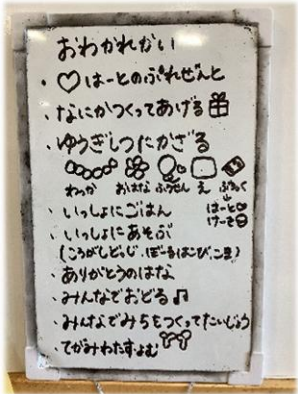 おわかれかい
・♡はーとのぷれぜんと
・なにかつくってあげる
・ゆうぎしつにかざる
わっか おはな ふうせん え
はーと♡
・いっしょにごはん
・いっしょにあそぶ
(ころがしどっじ・ぼーるはこび・こま)
・ありがとうのはな
・みんなでおどる♫
・みんなでみちをつくってたいじょう
・てがみわたす・よむ